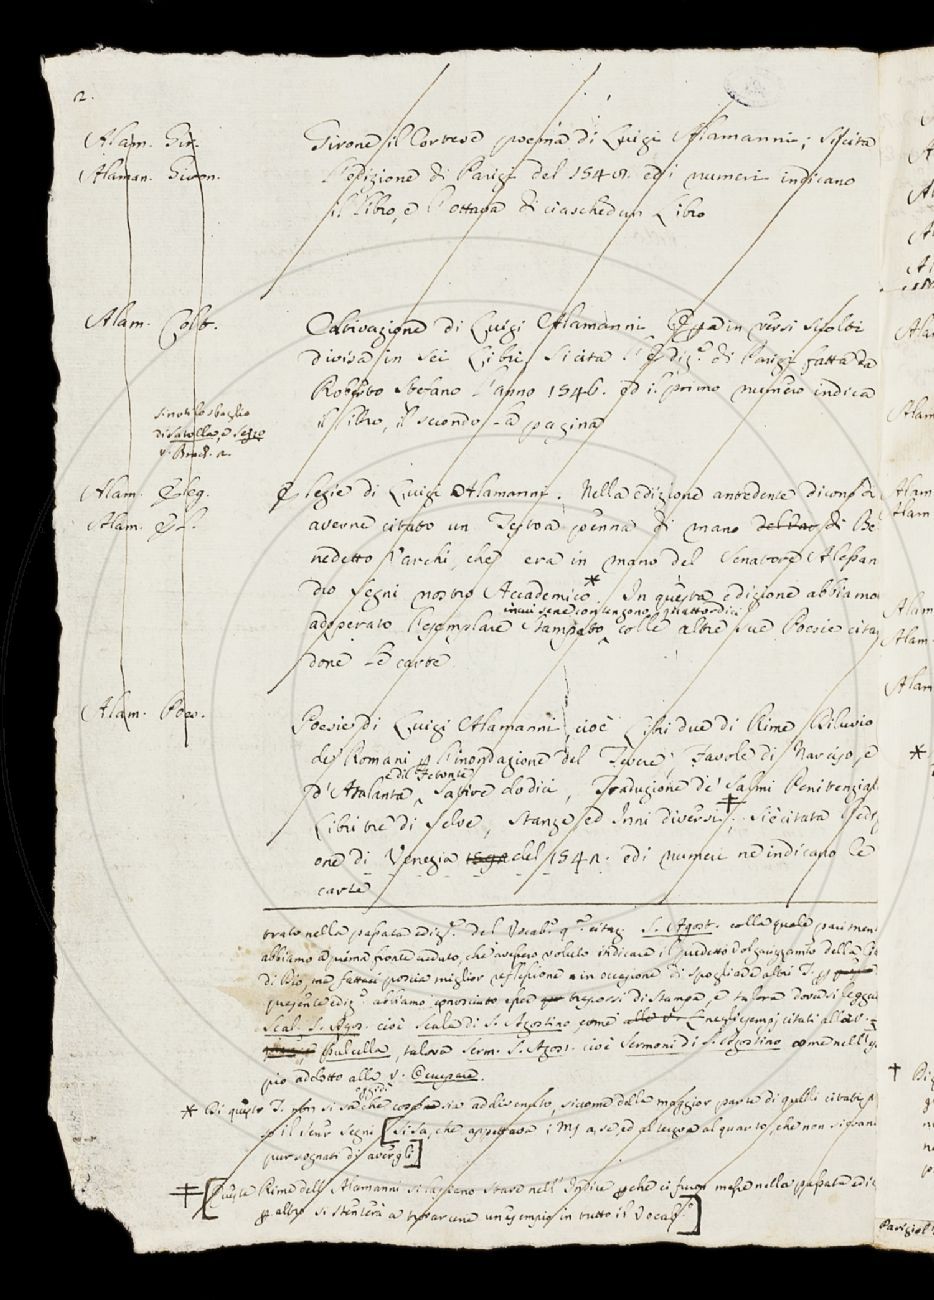 2.
Alam. Gir.
Alaman. Giron.
Girone il Cortese poema di Luigi Alamanni; Si cita
l'edizione di Parigi del 1548. ed i numeri indicano
il libro, e l'ottava di ciaschedun Libro
Alam. Colt.
Coltivazione di Luigi Alamanni in versi sciolti
divisa in sei Libri. Si cita l'Ediz.e di Parigi fatta da
Roberto Stefano l'anno 1546. ed il primo numero indica
il libro, il secondo la pagina
si noti lo sbaglio
di Satolla, e Sezzo
Alam. Eleg.
Alam. El.
Elegie di Luigi Alamanni. Nella edizione antedente dicono di
averne citato un Testo a penna di mano di Be
nedetto Varchi, che era in mano del Senatore Alessan
dro Segni nostro Accademico *. In questa edizione abbiamo
in cui se ne contengono quattordici
adoperato l'esemplare Stampato colle altre sue Poesie citan
done le carte
Alam. Poes.
Poesie di Luigi Alamanni, cioè Libri due di Rime Diluvio
de' Romani p l'inondazione del Tevere, Favole di Narciso, e
e di Fetonte
d'Atalanta, Satire dodici, Traduzione de' Salmi Penitenziali
Libri tre di Selve, Stanze ed Inni diversi ‡. Si è citata l'edizi
one di Venezia del 1542. ed i numeri ne indicano le
carte
trato nella passata ediz.e del Vocab. citaz. S. Agost. colla quale parimen
abbiamo a prima fronte creduto, che avessero voluto indicare il
di Dio, ma fattaci poscia miglior riflessione e in occasione di spogliare altri T. p
presente ediz.e abbiamo conosciuto essere trapassi di Stampa, e talora doversi legge
Scal. S. Agos. cioè Scala di S. Agostino come negli esempj citati alla v.
Pulcella, talora Serm. S. Agost. cioè Sermoni di S. Agostino come nell'
pio addotto alla v.
* Di questo T. non si sa che cosa sia addivenuto, siccome della maggior parte di quelli citati
il Sen.r Segni [Si sa, che aspettava i MS a se, ed al terzo e al quarto, che non si erano
pur sognati di avergli]
‡ [Queste Rime dell'Alamanni si lasciano stare nell'Indice p che ci furon messe nella passata edi
p altro si stenterà a trovarcene un esempio in tutto il Vocab.]